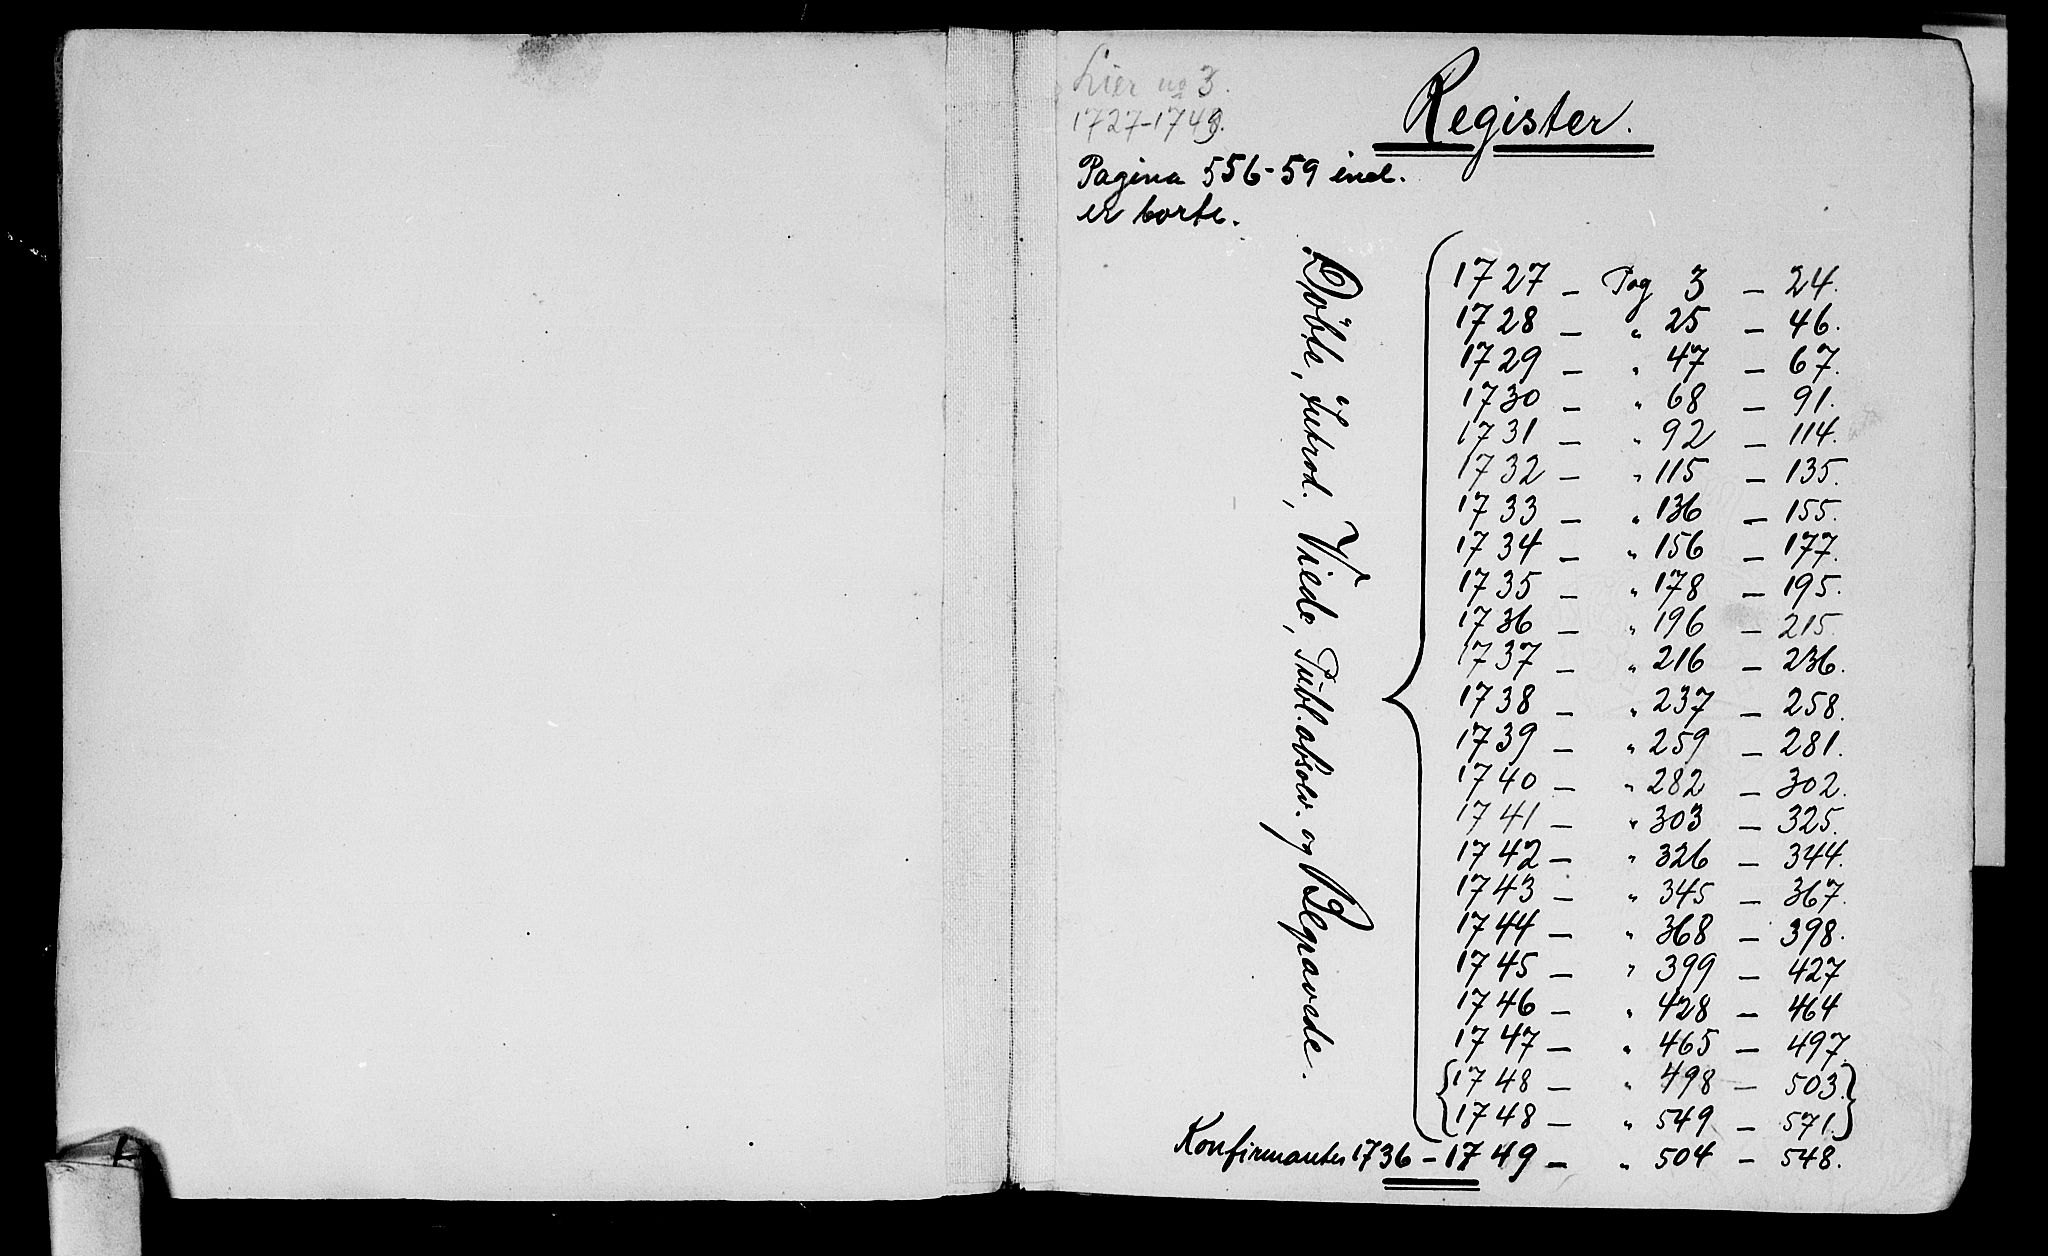 Lier no 3.
1727-1749.
Register.
Pagina 556-59 incl.
er borte.
Döbte, Introd., Viede, Publ. absolv. og Begravede.
1727 - Pag 3 - 24.
1728 - " 25 - 46.
1729 - " 47 - 67.
1730 - " 68 - 91.
1731 - " 92 - 114.
1732 - " 115 - 135.
1733 - " 136 - 155.
1734 - " 156 - 177.
1735 - " 178 - 195.
1736 - " 196 - 215.
1737 - " 216 - 236.
1738 - " 237 - 258.
1739 - " 259 - 281.
1740 - " 282 - 302.
1741 - " 303 - 325.
1742 - " 326 - 344.
1743 - " 345 - 367.
1744 - " 368 - 398.
1745 - " 399 - 427
1746 - " 428 - 464
1747 - " 465 - 497.
{1748 - " 498 - 503.}
{1748 - " 549 - 571.}
Konfirmanter 1736 - 1749 - " 504 - 548.